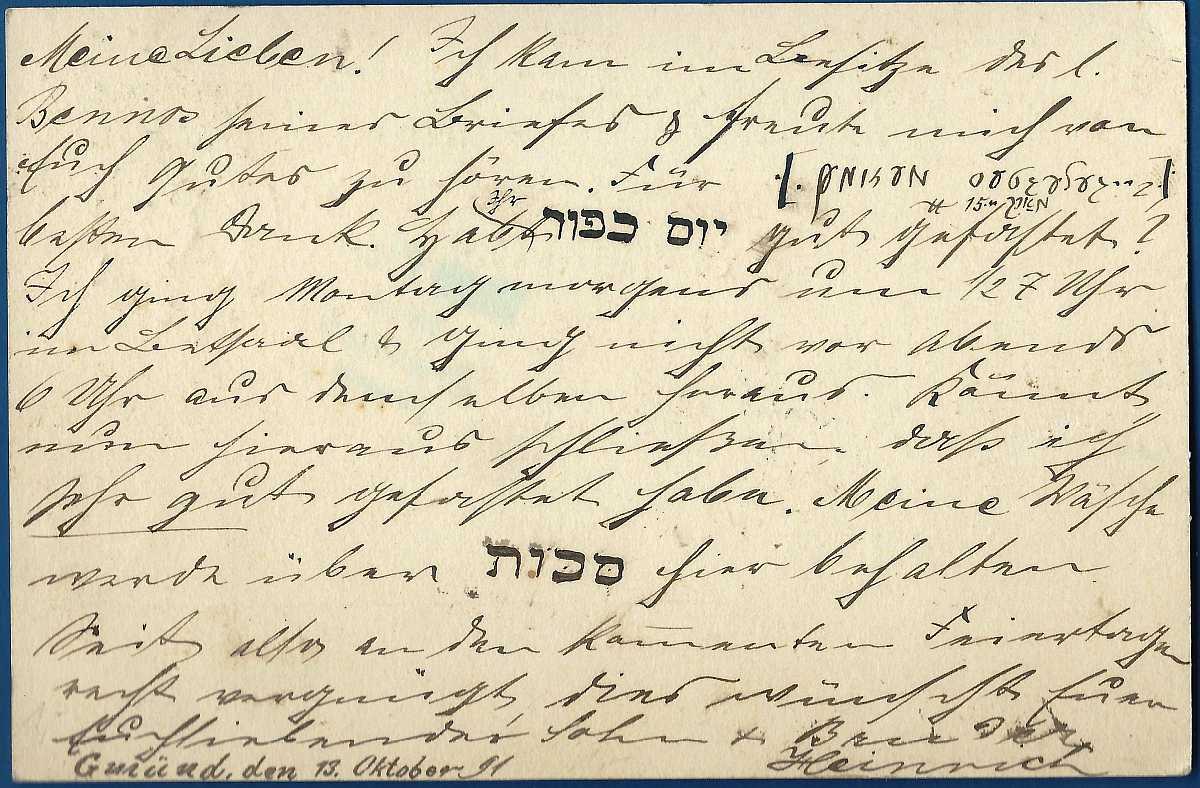 Meine Lieben! Ich kam im Besitze des l.
Bennos seines Briefes & freute mich von
Euch Gutes zu hören. Für
15 מארק
besten Dank. Habt Ihr יום כפור gut gefastet?
Ich ging Montag morgens um 1/2 7 Uhr
im Betsaal & ging nicht vor Abends
6 Uhr aus demselben heraus. Könnt
nun hieraus schließen, daß ich
sehr gut gefastet habe. Meine Wäsche
werde über סכות hier behalten
Seit also an den kom̅enten Feiertagen
recht vergnügt, dies wünscht Euer
Euchliebender Sohn & Bruder
Heinrich
Gmünd, den 13. Oktober 91